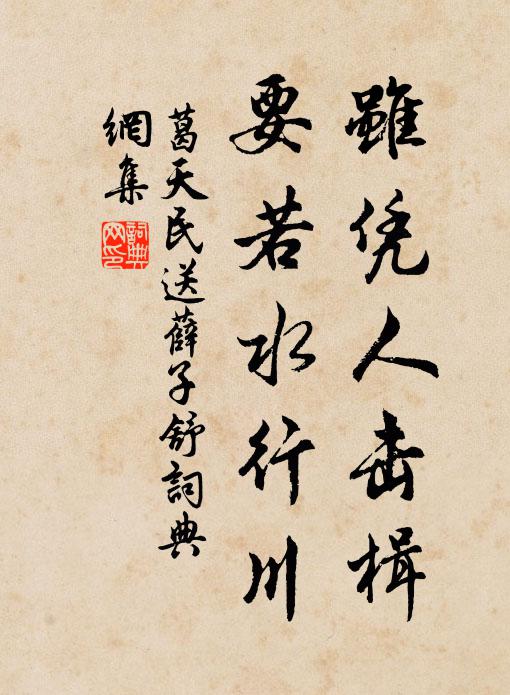 雖凭人击楫
要若水行川
葛天民送薛子舒詞典
網集
詞典
网印